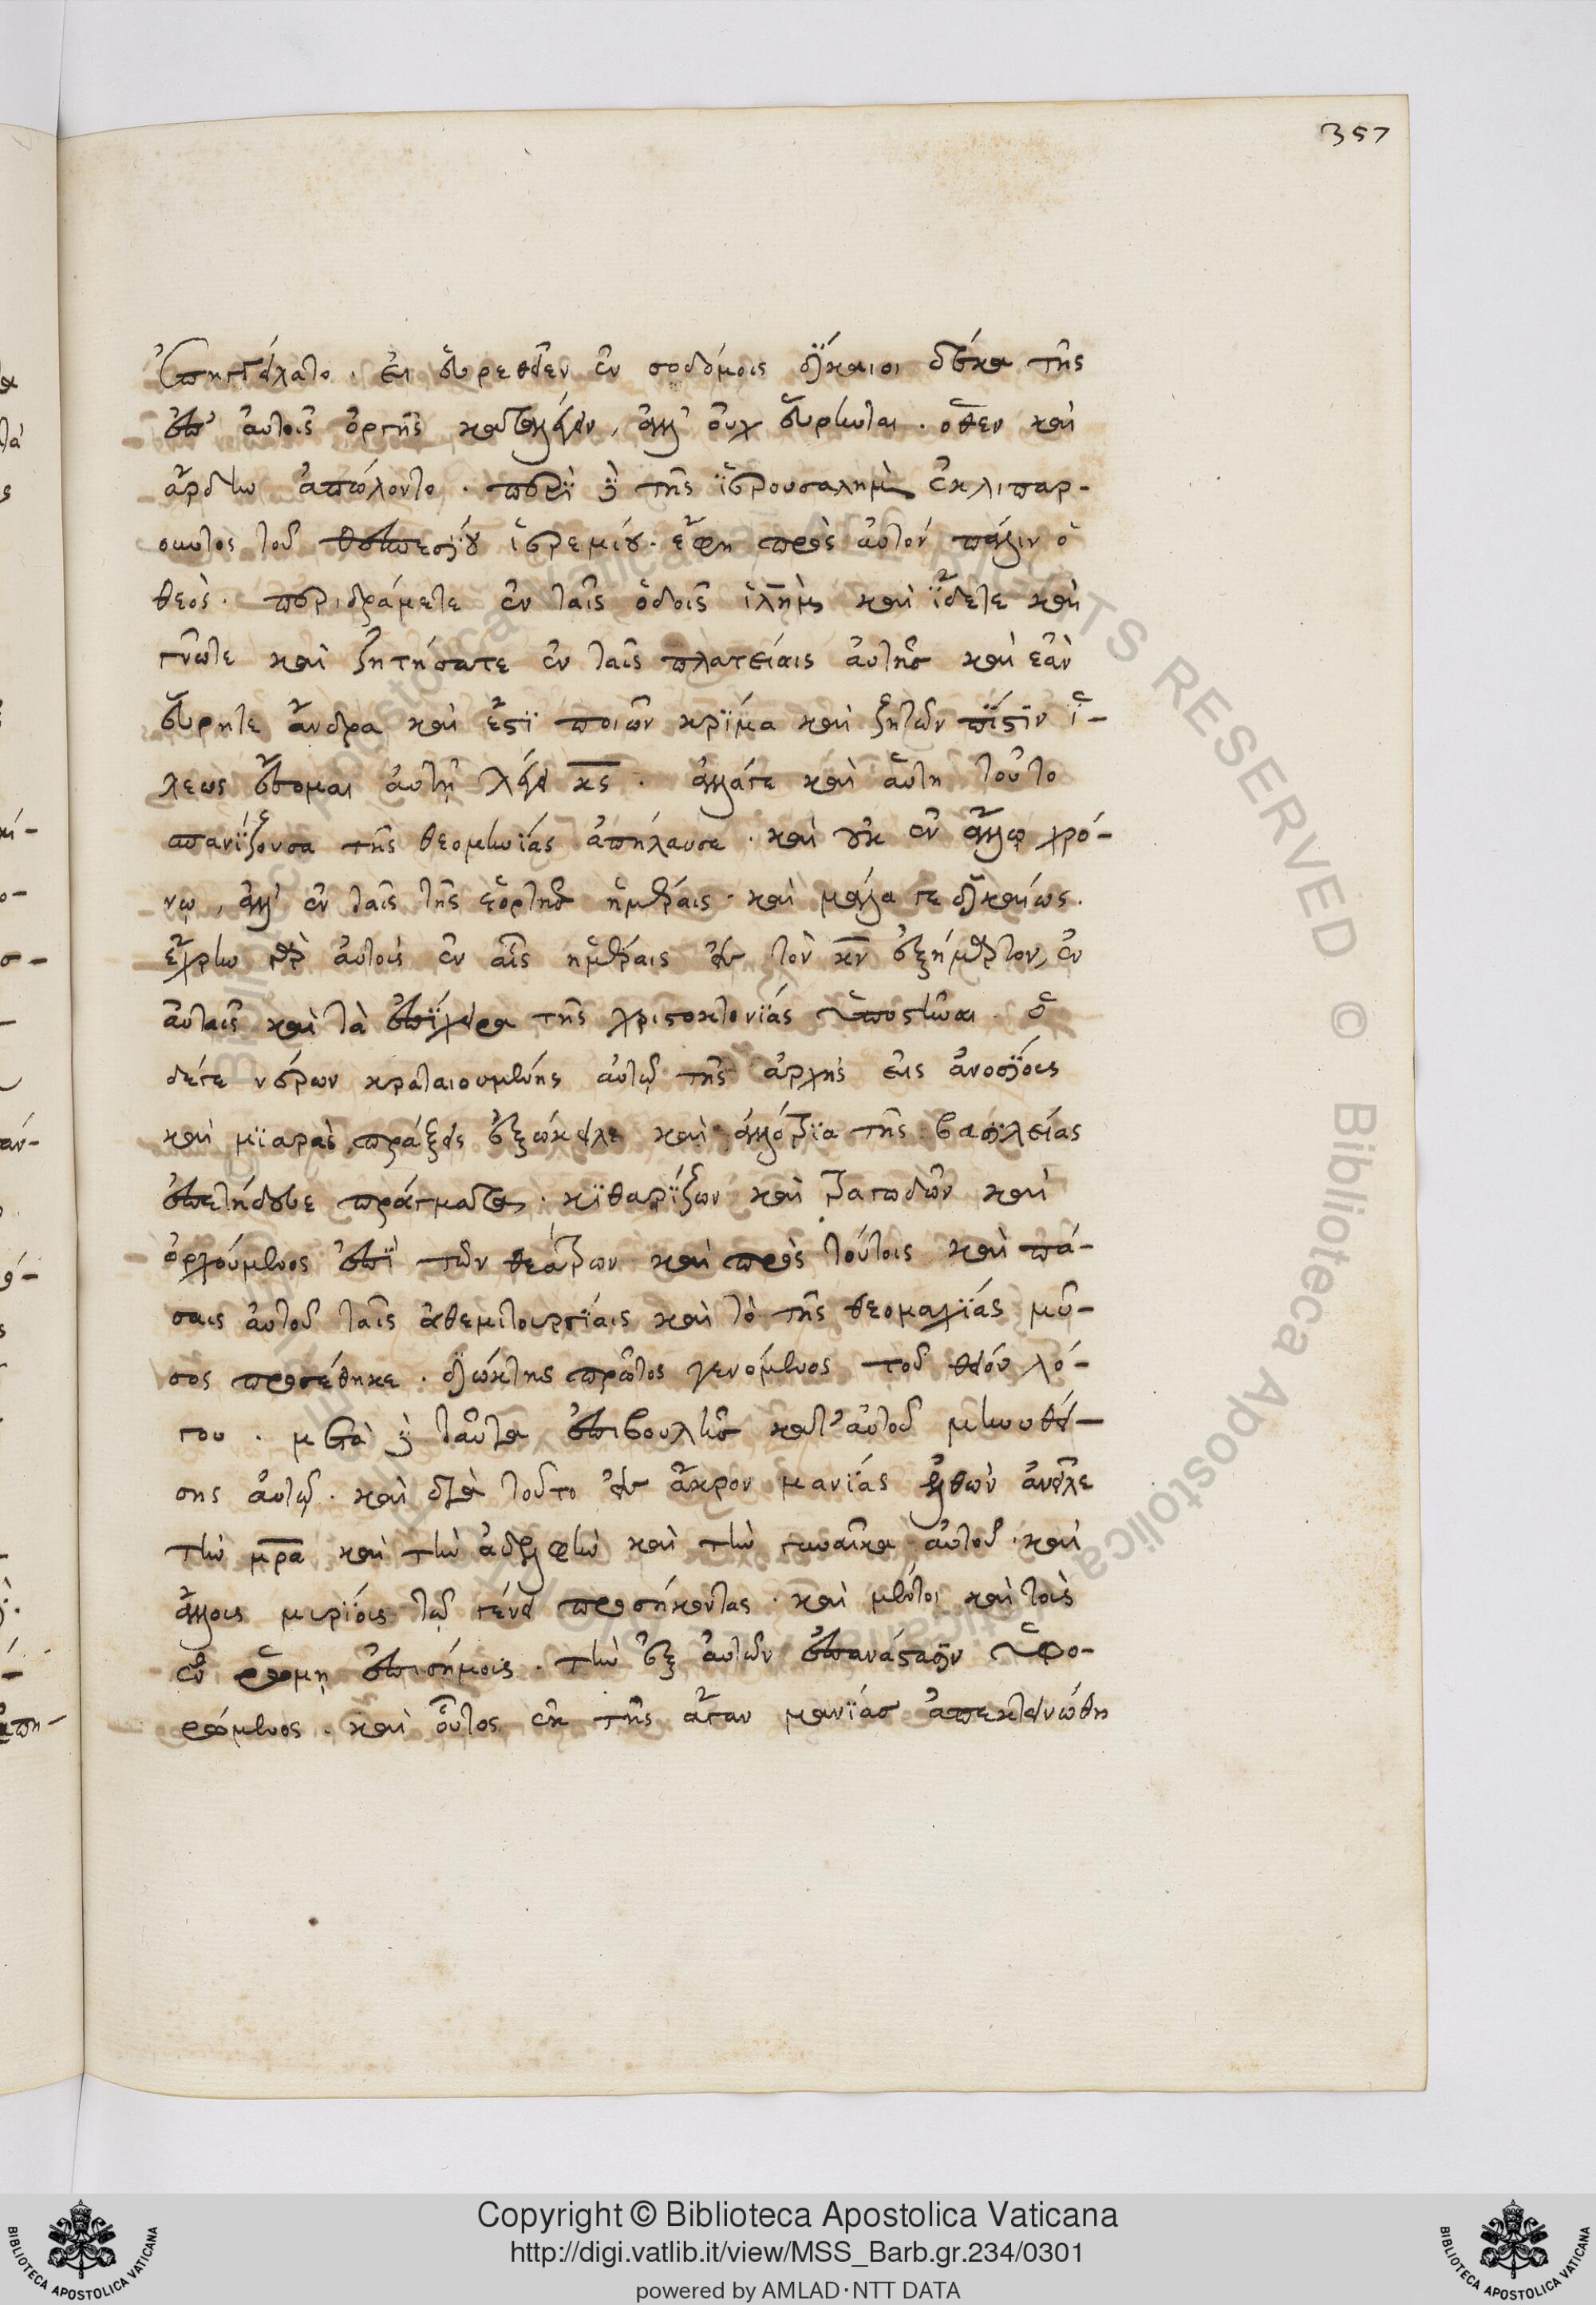 357
ἐπηγγείλατο. εἰ εὑρεθεῖεν ἐν σοδόμοις δίκαιοι δέκα τῆς
ἐπ' αὐτοῖς ὀργῆς καταλήξειν, ἀλλ' οὐχ εὕρηνται. ὅθεν καὶ
ἄρδην ἀπώλοντο. περὶ δὲ τῆς ἱερουσαλὴμ ἐκλιπαρ-
οῦντος τοῦ θεσπεσίου ἱερεμίου. ἔφη πρὸς αὐτὸν πάλιν ὁ
θεὸς. περιδράμετε ἐν ταῖς ὁδοῖς ἱλὴμ καὶ ἴδετε καὶ
γνῶτε καὶ ζητήσατε ἐν ταῖς πλατείαις αὐτῆς καὶ ἐὰν
εὕρητε ἄνδρα καὶ ἔστι ποιῶν κρίμα καὶ ζητῶν πίστιν ἵ-
λεως ἔσομαι αὐτῇ λέγει κς. ἀλλάγε καὶ αὕτη τοῦτο
σπανίζουσα τῆς θεομηνίας ἀπήλαυσε. καὶ οὐκ ἐν ἄλλῳ χρό-
νῳ, ἀλλ' ἐν ταῖς τῆς ἑορτῆς ἡμέραις. καὶ μάλα γε δικαίως.
ἔχρην γὰρ αὐτοὺς ἐν αἷς ἡμέραις εἰς τὸν κν ἐξήμαρτον, ἐν
αὐταῖς καὶ τὰ ἐπίχειρα τῆς χριστοκτονίας ὑποστῆναι. ὁ
δέγε νέρων κραταιουμένης αὐτῷ τῆς ἀρχῆς εἰς ἀνοσίους
καὶ μιαρὰς πράξεις ἐξώκειλε καὶ ἀλλότρια τῆς βασιλείας
ἐπετήδευε πράγματα. κιθαρίζων καὶ τραγωδῶν καὶ
ὀρχούμενος ἐπὶ τῶν θεάτρων καὶ πρὸς τούτοις καὶ πά-
σαις αὐτοῦ ταῖς ἀθεμιτουργίαις καὶ τὸ τῆς θεομαχίας μῦ-
σος προσέθηκε. διώκτης πρῶτος γενόμενος τοῦ θείου λό-
γου. μετὰ δὲ ταῦτα ἐπιβουλῆς κατ' αὐτοῦ μηνυθεί-
σης αὐτῷ. καὶ διὰ τοῦτο εἰς ἄκρον μανίας ἐλθὼν ἀνεῖλε
τὴν μρα καὶ τὴν ἀδελφὴν καὶ τὴν γυναῖκα αὐτοῦ. καὶ
ἄλλους μυρίους τῷ γένει προσήκοντας. καὶ μέντοι καὶ τοὺς
ἐν ῥώμῃ ἐπισήμοις. τὴν ἐξ αὐτῶν ἐπανάστασιν ὑφο-
ρώμενος. καὶ οὗτος ἐκ τῆς ἄγαν μανίας ἀπεκτεινώθη
Copyright © Biblioteca Apostolica Vaticana
http://digi.vatlib.it/view/MSS_Barb.gr.234/0301
powered by AMLAD·NTT DATA